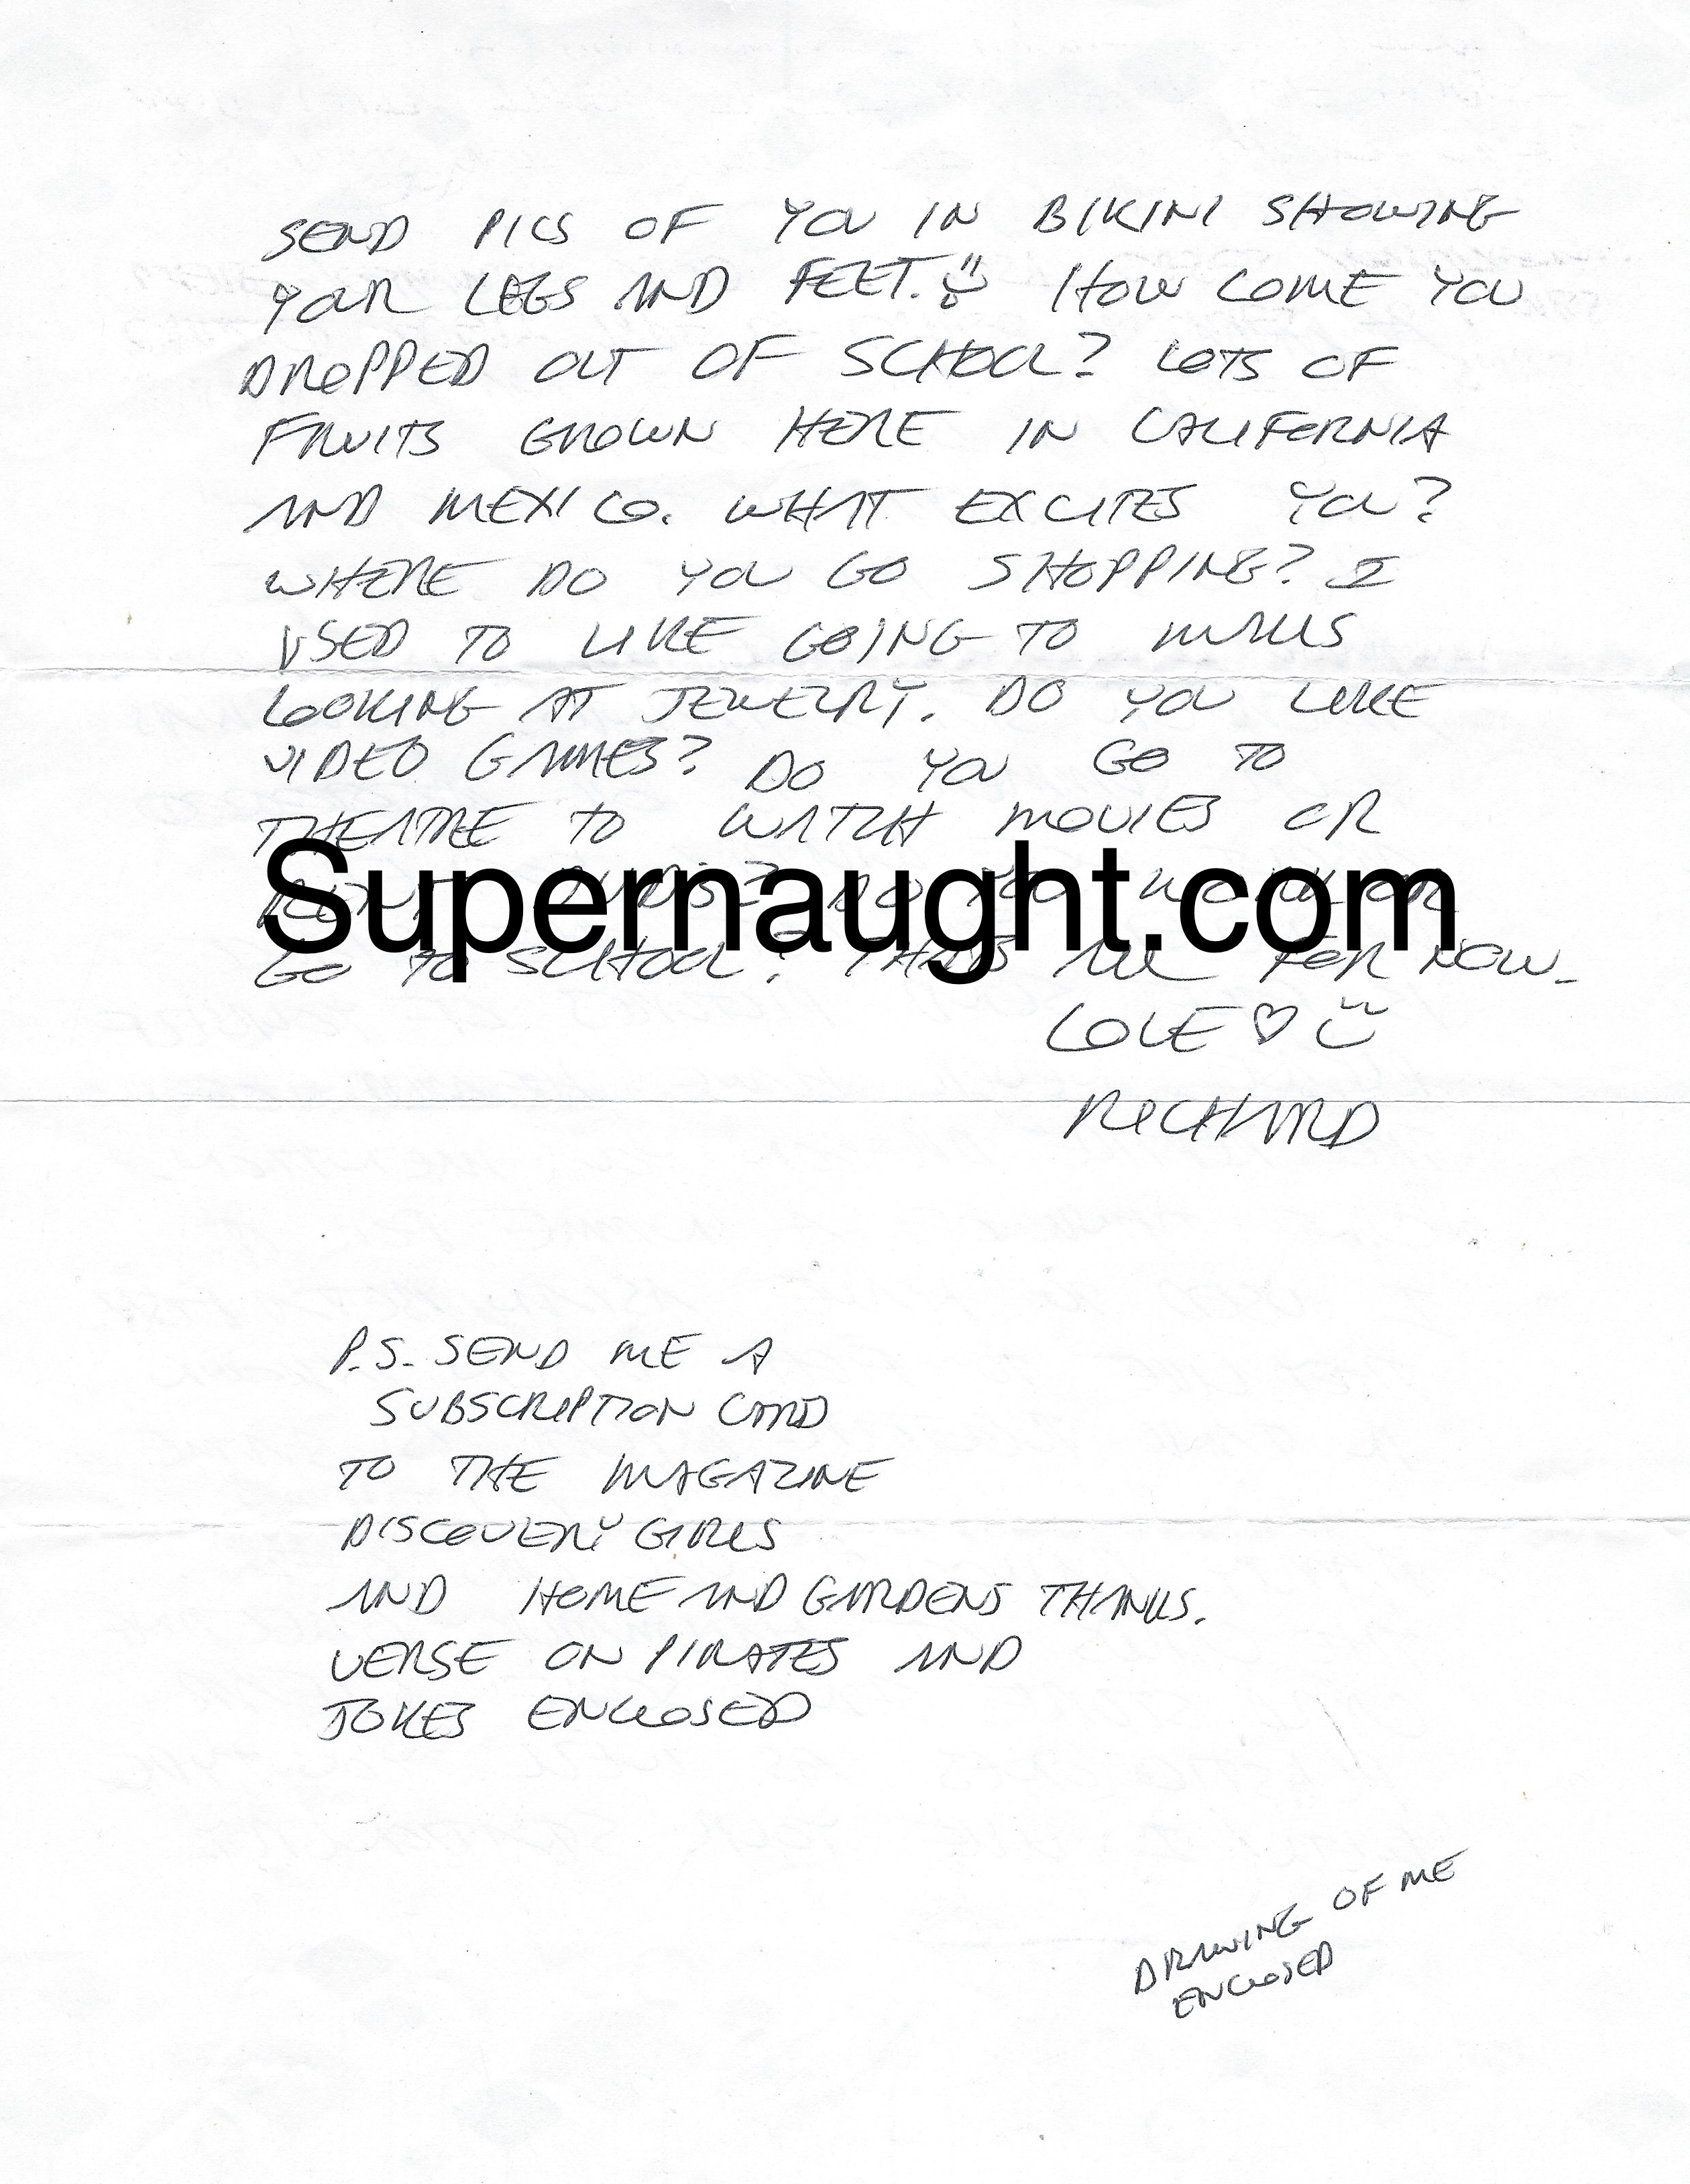 SEND PICS OF YOU IN BIKINI SHOWING
YOUR LEGS AND FEET. HOW COME YOU
DROPPED OUT OF SCHOOL? LOTS OF
FRUITS GROWN HERE IN CALIFORNIA
AND MEXICO. WHAT EXCITES YOU?
WHERE DO YOU GO SHOPPING? I
USED TO LIKE GOING TO MALLS
LOOKING AT JEWELRY. DO YOU LIKE
VIDEO GAMES? DO YOU GO TO
THEATRE TO WATCH MOVIES OR
RENT DVDS? DO YOU WORK OR
Supernaught.com
GO TO SCHOOL? THATS ALL FOR NOW.
LOVE ♡
RICHARD
P.S. SEND ME A
SUBSCRIPTION CARD
TO THE MAGAZINE
DISCOVERY GIRLS
AND HOME AND GARDENS THANKS.
VERSE ON PIRATES AND
JOKES ENCLOSED
DRAWING OF ME
ENCLOSED